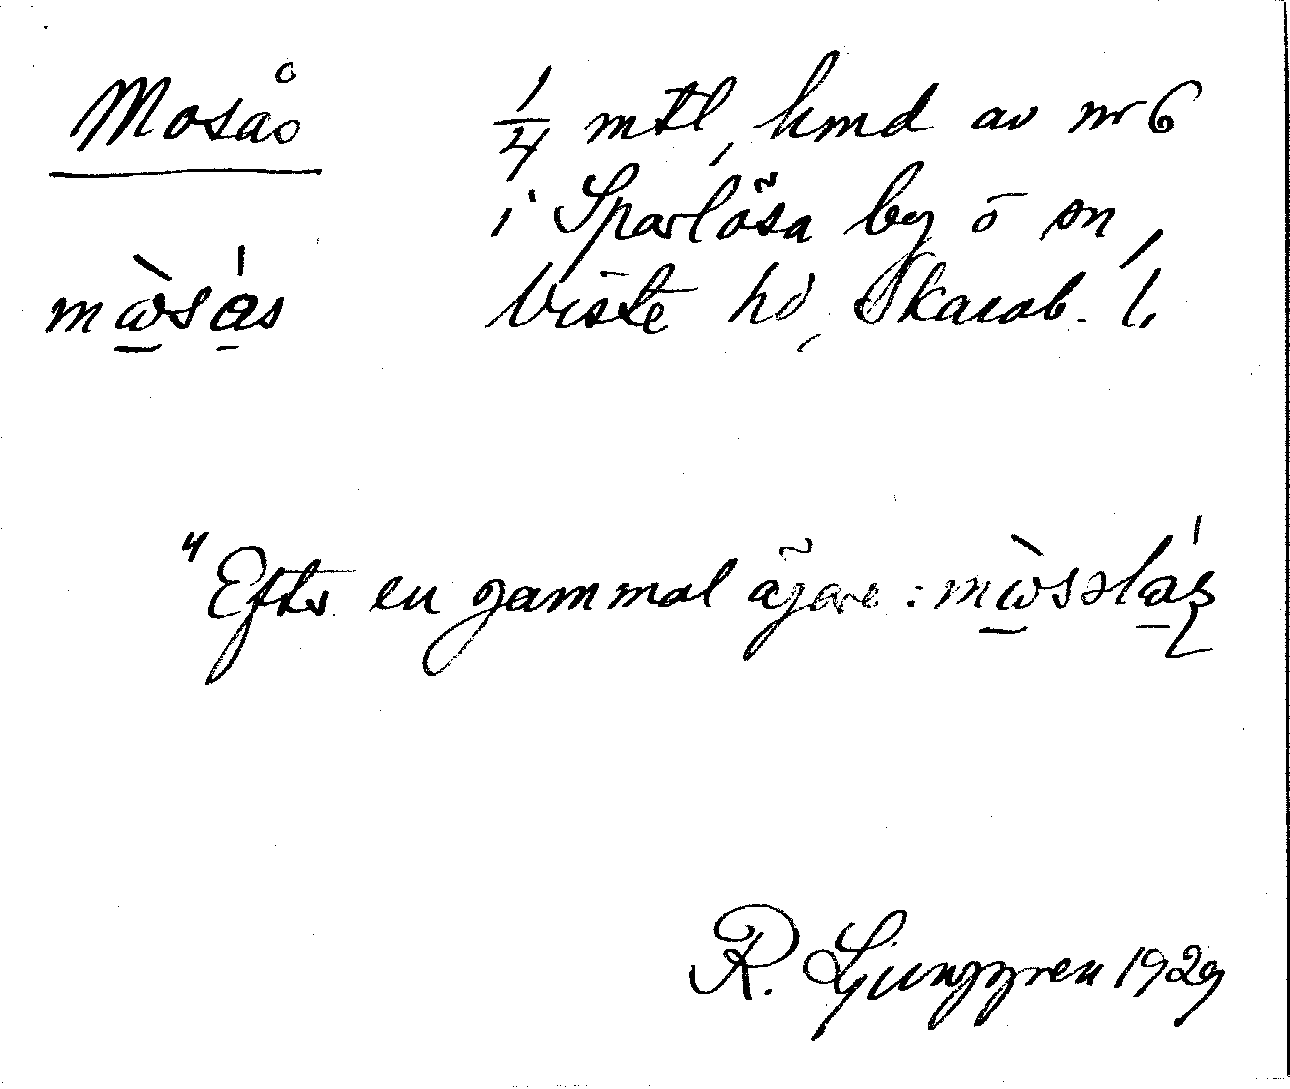 Mosås
¼ mtl, hmd av nr 6
i Sparlösa by o sn,
Viste hd, Skarab. l.
mὼsás
"Efter en gammal ägare :
R. Ljunggren 1929